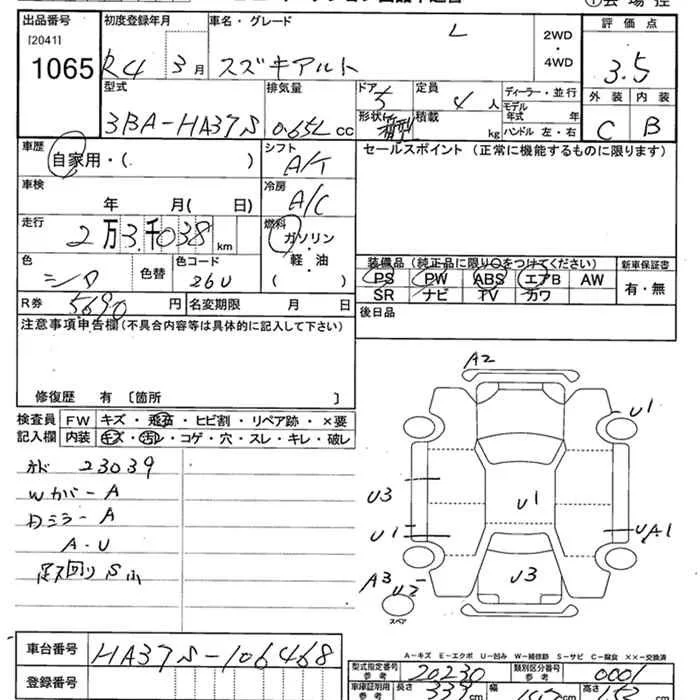 出品番号 初度登録年月 車名・グレード 評価点
[2041]
1065
R4 3月 スズキアルト L
2WD
・
4WD
3.5
外装 内装
C B
型式 排気量 ドア 定員 ディーラー・並行
3BA-HA37S 0.65L cc 5 4人
形状 箱型 積載 kg
モデル年式 年
ハンドル 左・右
車歴 自家用・( )
シフト A/T
セールスポイント(正常に機能するものに限ります)
車検 年 月( 日)
冷房 A/C
走行 2万3千038km
燃料 ガソリン・軽・油( )
色 シロ 色替 色コード 26U
装備品(純正品に限り○をつけてください) 新車保証書
PS PW ABS エアB AW 有・無
SR ナビ TV カワ
R券 5690円 名変期限 月 日
後日品
注意事項申告欄(不具合内容等は具体的に記入して下さい)
修復歴 有 〔箇所 〕
検査員 FW キズ・飛石・ヒビ割・リペア跡・×要
記入欄 内装 キズ・汚レ・コゲ・穴・スレ・キレ・破レ
23039
Wカバー A
Dミラー A
A・U
足廻りS小
A2
U1
U3
U1
U1
UA1
A3
U2
U3
スペア
A-キズ E-エクボ U-凹み W-補修跡 S-サビ C-腐食 ××-交換済
車台番号 HA37S-106468
登録番号
型式指定番号 参考 20230 類別区分番号 参考 0001
車庫証明用 参考 長さ 339cm 幅 cm 高さ 152cm